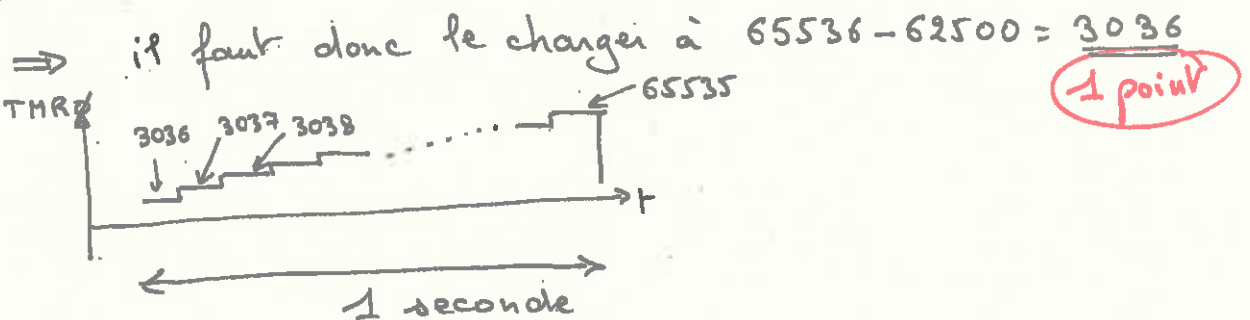 ⇒ il faut donc le charger à 65536-62500 = 3036
1 point
TMRØ
65535
3036 3037 3038
t
1 seconde